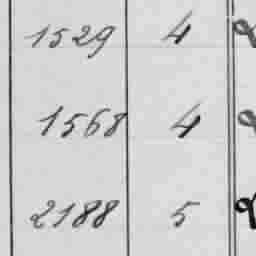 1529 4
1568 4
2188 5